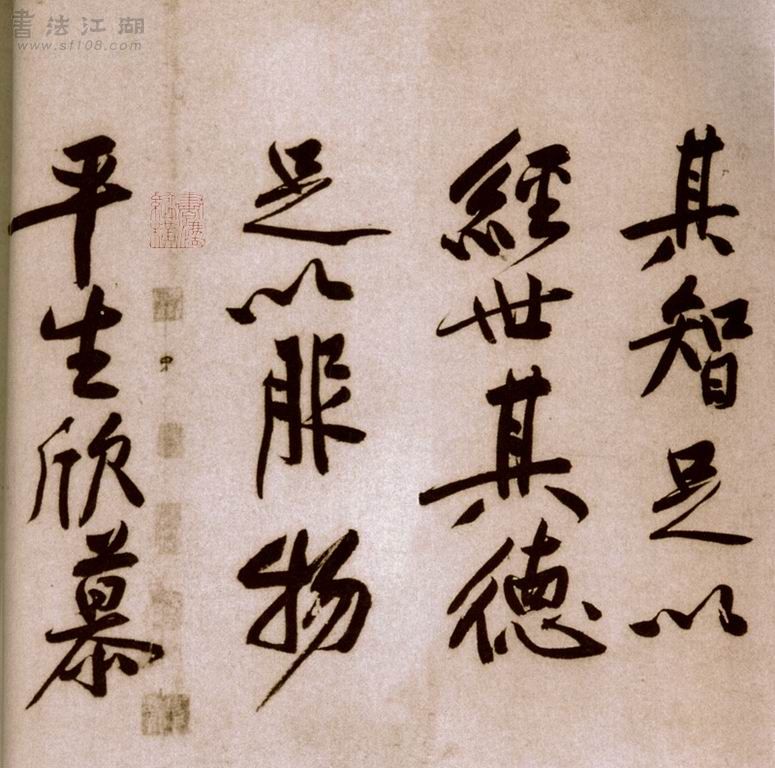 其智足以
經世其德
足以服物
平生欣慕
書法江湖
www.sf108.com